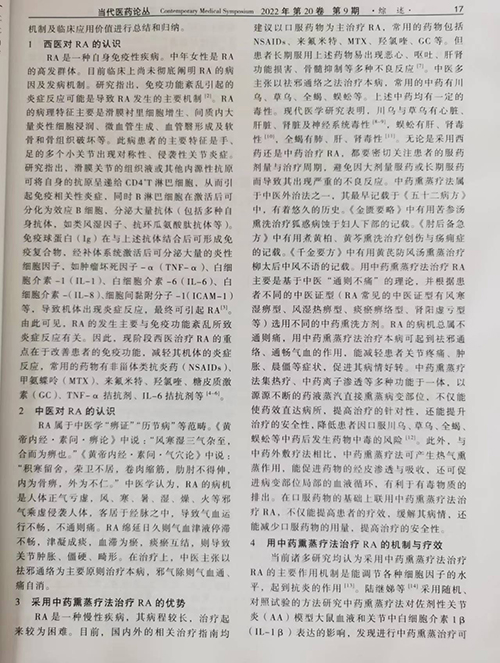 当代医药论丛 Contemporary Medical Symposium 2022 年第 20 卷 第 9 期 ·综 述· 17
机制及临床应用价值进行总结和归纳。
1 西医对 RA 的认识
RA 是一种自身免疫性疾病。中年女性是 RA
的高发群体。目前临床上尚未彻底阐明 RA 的病
因及发病机制。研究指出，免疫功能紊乱引起的
炎症反应可能是导致 RA 发生的主要机制 [2]。RA
的病理特征主要是滑膜衬里细胞增生、间质内大
量炎性细胞浸润、微血管生成、血管翳形成及软
骨和骨组织破坏等。此病患者的主要特征是手、
足的多个小关节出现对称性、侵袭性关节炎症。
研究指出，滑膜关节的组织液或其他内源性抗原
可将自身的抗原呈递给 CD4⁺T 淋巴细胞，从而引
起免疫相关性炎症，同时 B 淋巴细胞在激活后可
分化为效应 B 细胞，分泌大量抗体（包括多种自
身抗体，如类风湿因子、抗环瓜氨酸肽抗体等）。
免疫球蛋白（Ig）在与上述抗体结合后可形成免
疫复合物，经补体系统激活后可分泌大量的炎性
细胞因子，如肿瘤坏死因子 -α（TNF-α）、白细
胞介素 -1（IL-1）、白细胞介素 -6（IL-6）、白
细胞介素 -8（IL-8）、细胞间黏附分子 -1（ICAM-1）
等，导致机体出现炎症反应，最终可引起 RA[3]。
由此可见，RA 的发生主要与免疫功能紊乱所致
炎症反应有关。因此，现阶段西医治疗 RA 的重
点在于改善患者的免疫功能，减轻其机体的炎症
反应，常用的药物有非甾体类抗炎药（NSAIDs）、
甲氨蝶呤（MTX）、来氟米特、羟氯喹、糖皮质激素
（GC）、TNF-α 拮抗剂、IL-6 拮抗剂等 [4-6]。
2 中医对 RA 的认识
RA 属于中医学“痹证”“历节病”等范畴。《黄
帝内经·素问·痹论》中说：“风寒湿三气杂至，
合而为痹也。”《黄帝内经·素问·气穴论》中说：
“积寒留舍，荣卫不居，卷肉缩筋，肋肘不得伸，
内为骨痹，外为不仁。”中医学认为，RA 的病机
是人体正气亏虚，风、寒、暑、湿、燥、火等邪
气乘虚侵袭人体，客居于经脉之中，导致气血运
行不畅，不通则痛。RA 绵延日久则气血津液停滞
不畅，津凝成痰，血滞为瘀，痰瘀互结，则导致
关节肿胀、僵硬、畸形。在治疗上，中医主张以
祛邪通络为主要原则治疗本病，邪气除则气血通，
痛自消。
3 采用中药熏蒸疗法治疗 RA 的优势
RA 是一种慢性疾病，其病程较长，治疗起
来较为困难。目前，国内外的相关治疗指南均
建议以口服药物为主治疗 RA，常用的药物包括
NSAIDs、来氟米特、MTX、羟氯喹、GC 等。但
患者长期服用上述药物易出现恶心、呕吐、肝肾
功能损害、骨髓抑制等多种不良反应 [7]。中医多
主张以祛邪通络之法治疗本病，常用的中药有川
乌、草乌、全蝎、蜈蚣等。上述中药均有一定的
毒性。现代医学研究表明，川乌与草乌有心脏、
肝脏、肾脏及神经系统毒性 [8-9]，蜈蚣有肝、肾毒
性 [10]，全蝎有肺、肝、肾毒性 [11]。无论是采用西
药还是中药治疗 RA，都要密切关注患者的服药
剂量与治疗周期，避免因大剂量服药或长期服药
而导致其出现严重的不良反应。中药熏蒸疗法属
于中医外治法之一，其最早记载于《五十二病方》
中，有着悠久的历史。《金匮要略》中有用苦参汤
熏洗治疗狐惑病蚀于妇人下部的记载。《肘后备急
方》中有用煮黄柏、黄芩熏洗治疗创伤与疡痈症
的记载。《千金要方》中有用黄芪防风汤熏蒸治疗
柳太后中风不语的记载。用中药熏蒸疗法治疗 RA
主要是基于中医“通则不痛”的理论，并根据患
者不同的中医证型（RA 常见的中医证型有风寒
湿痹型、风湿热痹型、痰瘀痹络型、肾阳虚亏型
等）选用不同的中药熏洗方。RA 的病机总属不
通则痛，用中药熏蒸疗法治疗本病可起到祛邪通
络、通畅气血的作用，能减轻患者关节疼痛、肿
胀、晨僵等症状，促进其病情好转。中药熏蒸疗
法集热疗、中药离子渗透等多种功能于一体，以
源源不断的药液蒸汽直接熏蒸病变部位，不仅能
使药效直达病所，提高治疗的针对性，还能提升
治疗的安全性，降低患者因口服川乌、草乌、全蝎、
蜈蚣等中药后发生药物中毒的风险 [12]。此外，与
中药外敷疗法相比，中药熏蒸疗法可产生热气熏
蒸作用，能促进药物的经皮渗透与吸收，还可促
进病变部位局部的血液循环，有利于有毒物质的
排出。在口服药物的基础上联用中药熏蒸疗法治
疗 RA，不仅能提高患者的疗效，缓解其病情，还
能减少口服药物的用量，提高治疗的安全性。
4 用中药熏蒸疗法治疗 RA 的机制与疗效
当前诸多研究均认为采用中药熏蒸疗法治疗
RA 的主要作用机制是能调节各种细胞因子的水
平，起到抗炎的作用 [13]。陆继娣等 [14] 采用随机、
对照试验的方法研究中药熏蒸疗法对佐剂性关节
炎（AA）模型大鼠血液和关节中白细胞介素 1β
（IL-1β）表达的影响，发现进行中药熏蒸疗可